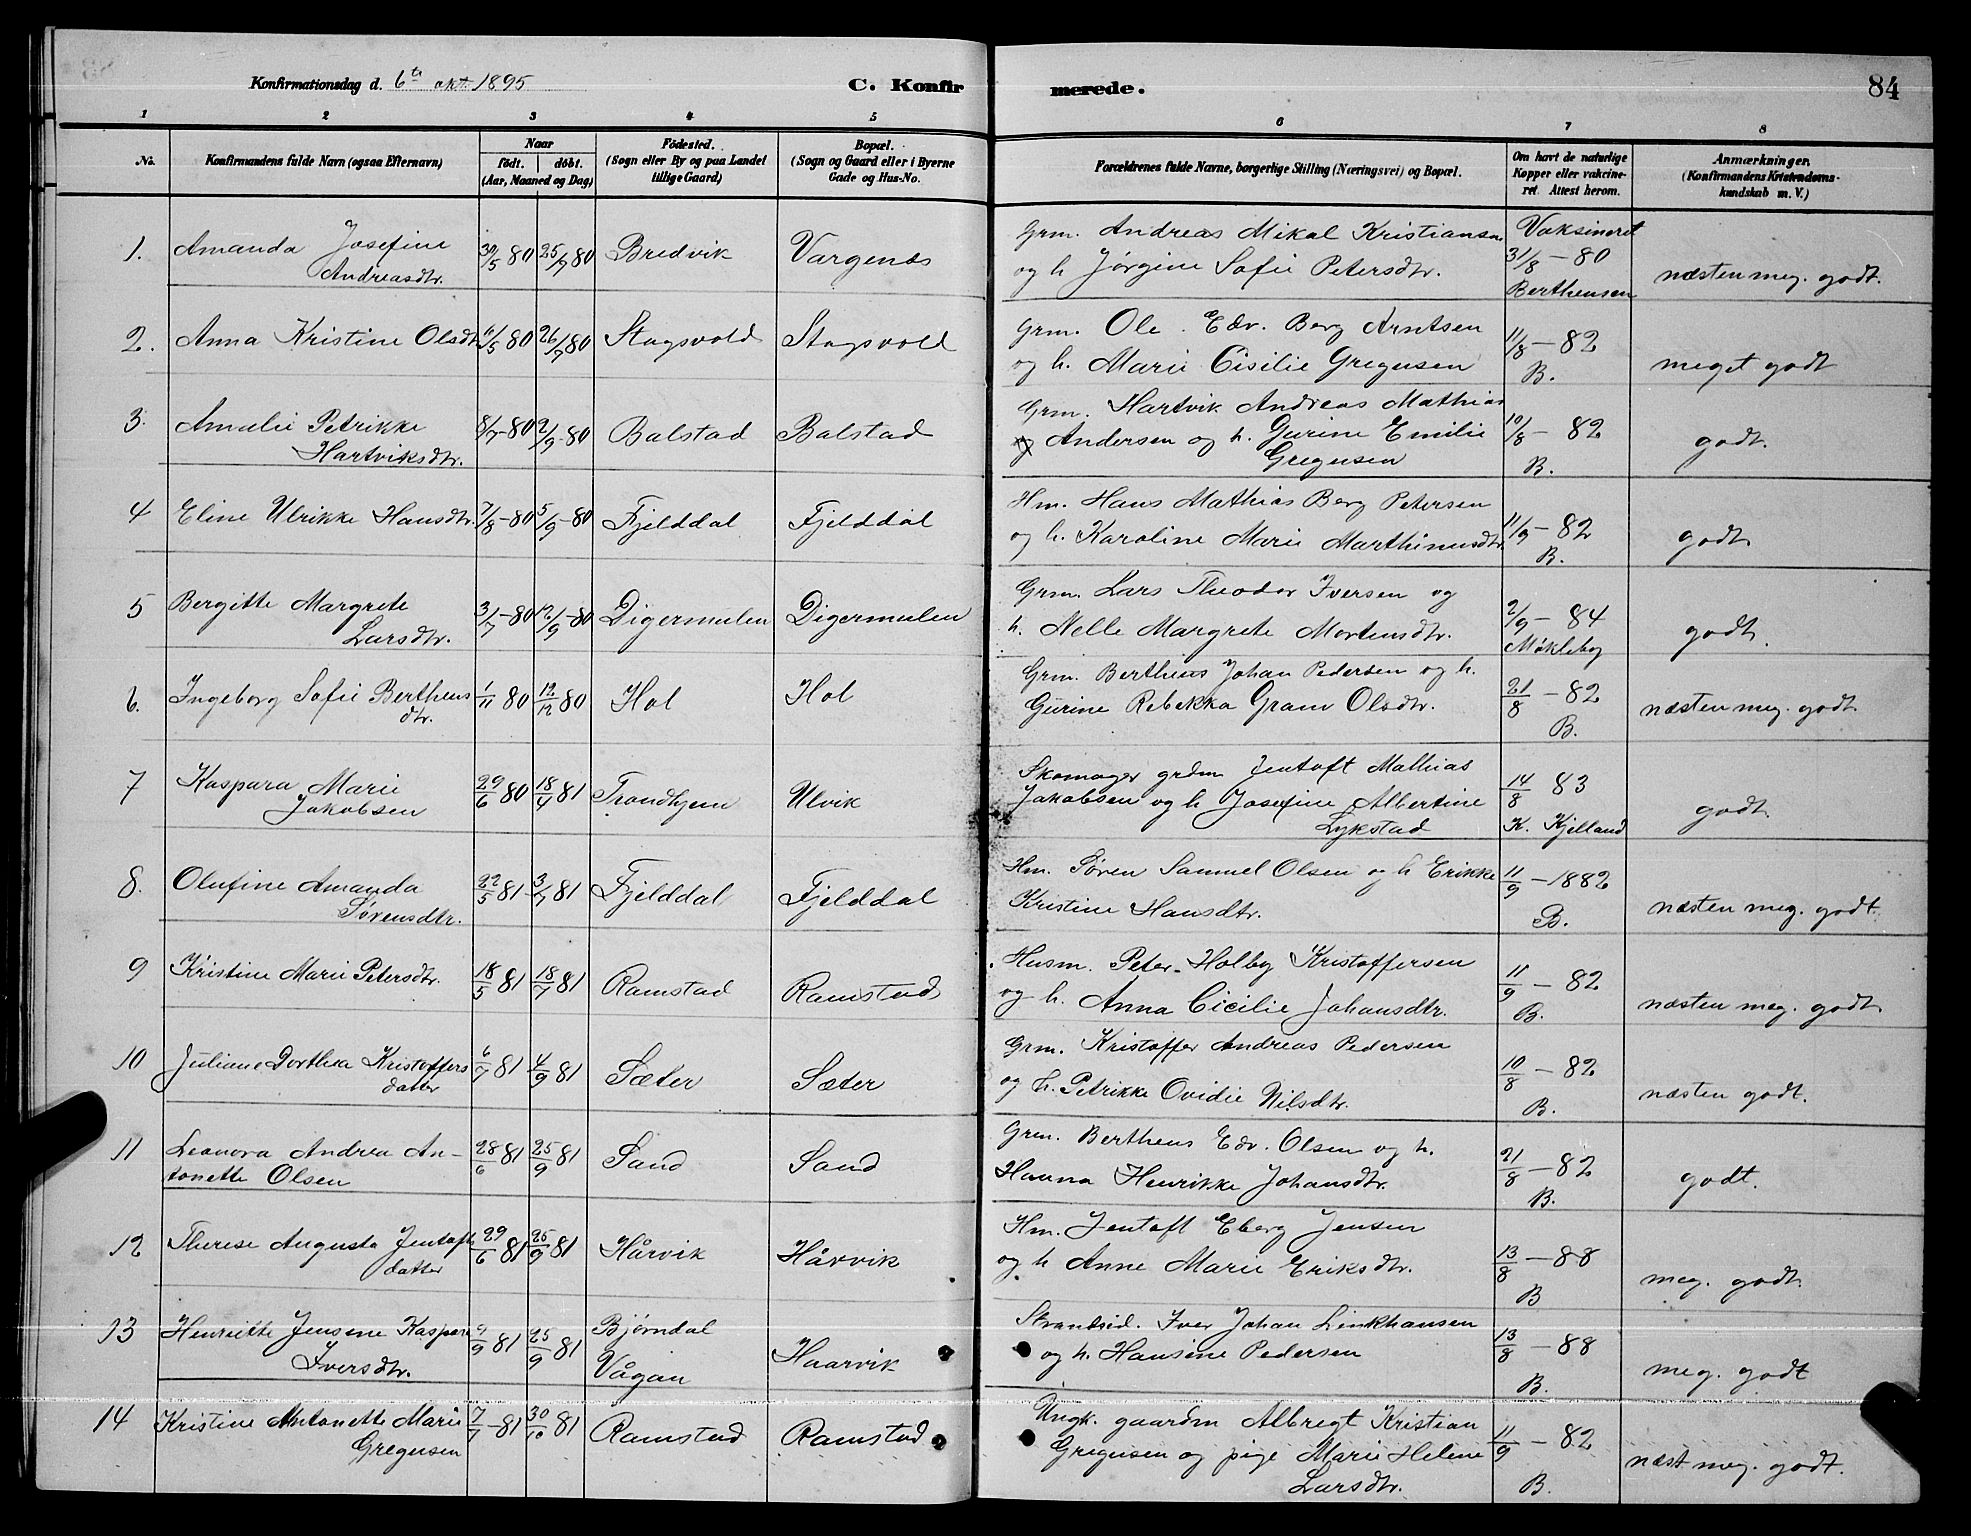 Konfirmationsdag d. 6te okt. 1895
C. Konfirmerede.
84
1 2 3 4 5 6 7 8
No.
Konfirmandens fulde Navn (ogsaa Efternavn)
Naar
født. døbt.
(Aar, Maaned og Dag)
Fødested.
(Sogn eller By og paa Landet
tillige Gaard)
Bopæl.
(Sogn og Gaard eller i Byerne
Gade og Hus-No.
Forældrenes fulde Navne, borgerlige Stilling (Næringsvei) og Bopæl.
Om havt de naturlige
Kopper eller vakcine-
ret. Attest herom.
Anmærkninger.
(Konfirmandens Kristendoms-
kundskab m. V.)
1. Amanda Josefine 30/5 80 25/7 80 Bredvik Vargenes Grm. Andreas Mikal Kristiansen Vaksineret
Andreasdtr. og h Jørgine Sofie Petersdtr. 31/8 – 80 næsten meg. godt.
Berthensen
2. Anna Kristine Olsdtr 11/5 80 26/7 80 Stagsvold Stagsvold Grm. Ole Edv. Berg Arntsen 11/8 – 82
og h. Marie Cisilie Gregusen B. meget godt
3. Amalie Petrikke 8/7 – 80 2/9 – 80 Balstad Balstad Grm. Hartvik Andreas Mathias 10/8 – 82
Hartviksdtr. og Andersen og h. Gurine Emilie godt.
Gregusen B.
4 Eline Ulrikke Hansdtr. 7/8 – 80 5/9 – 80 Fjelddal Fjelddal Hm. Hans Mathias Berg Petersen
og h. Karoline Marie Marthinusdtr. 11/9 – 82 godt
B.
5 Bergitte Margrete 3/7 – 80 12/9 – 80 Digermulen Digermulen Grm. Lars Theodor Iversen og
Larsdtr. h. Nelle Margrete Mortensdtr. 2/9 – 84 godt.
Møkleby
6. Ingeborg Sofie Berthens 1/11 80 12/12 80 Hol Hol Grm. Berthens Johan Pedersen og h.
dtr. Gurine Rebekka Gram Olsdtr. 21/8 – 82 næsten meg. godt.
B.
7 Kaspara Marie 29/6 80 18/4 81 Trondhjem Ulvik Skomager grdm Jentoft Mathias
Jakobsen Jakobsen og h Josefine Albertine 14/8 83 godt.
Lykstad K. Kjelland
8. Olufine Amanda 22/5 81 3/7 81 Fjelddal Fjelddal Hm. Søren Samuel Olsen og h Erikke 11/9 – 1882
Sørensdtr. Kristine Hansdtr. B. næsten meg. godt
9 Kristine Marie Petersdtr. 18/5 81 18/7 81 Ramstad Ramstad Husm. Peter Holby Kristoffersen 11/9 – 82
og h. Anna Cicilie Johansdtr. B. næsten meg. godt
10 Juliane Dorthea Kristoffers 6/7 81 4/9 81 Sæter Sæter Grm. Kristoffer Andreas Pedersen
datter og h. Petrikke Ovidie Nilsdtr. 10/8 – 82 næsten godt.
B.
11 Leonora Andrea An- 28/6 81 25/9 81 Sand Sand Grm. Berthens Edv. Olsen og h.
tonette Olsen Hanna Henrikke Johansdtr. 21/8 – 82 godt.
B.
12 Therese Augusta Jentofts 29/6 81 25/9 81 Hårvik Hårvik Hm. Jentoft Eberg Jensen
datter og h Anne Marie Eriksdtr. 13/8 – 88 meg. godt
B
13 Henriette Jensine Kaspara 9/9 81 25/9 81 Bjørndal Haarvik Strandsid. Iver Johan Linkhausen
Iversdtr. Vågan og h. Hansine Pedersen 13/8 – 88 meg. godt
B.
14 Kristine Antonette Marie 7/7 – 81 30/10 81 Ramstad Ramstad Ungk. gaardm Albregt Kristian
Gregusen Gregusen og pige Marie Helene 11/9 – 82 næst meg. godt.
Larsdtr. B.